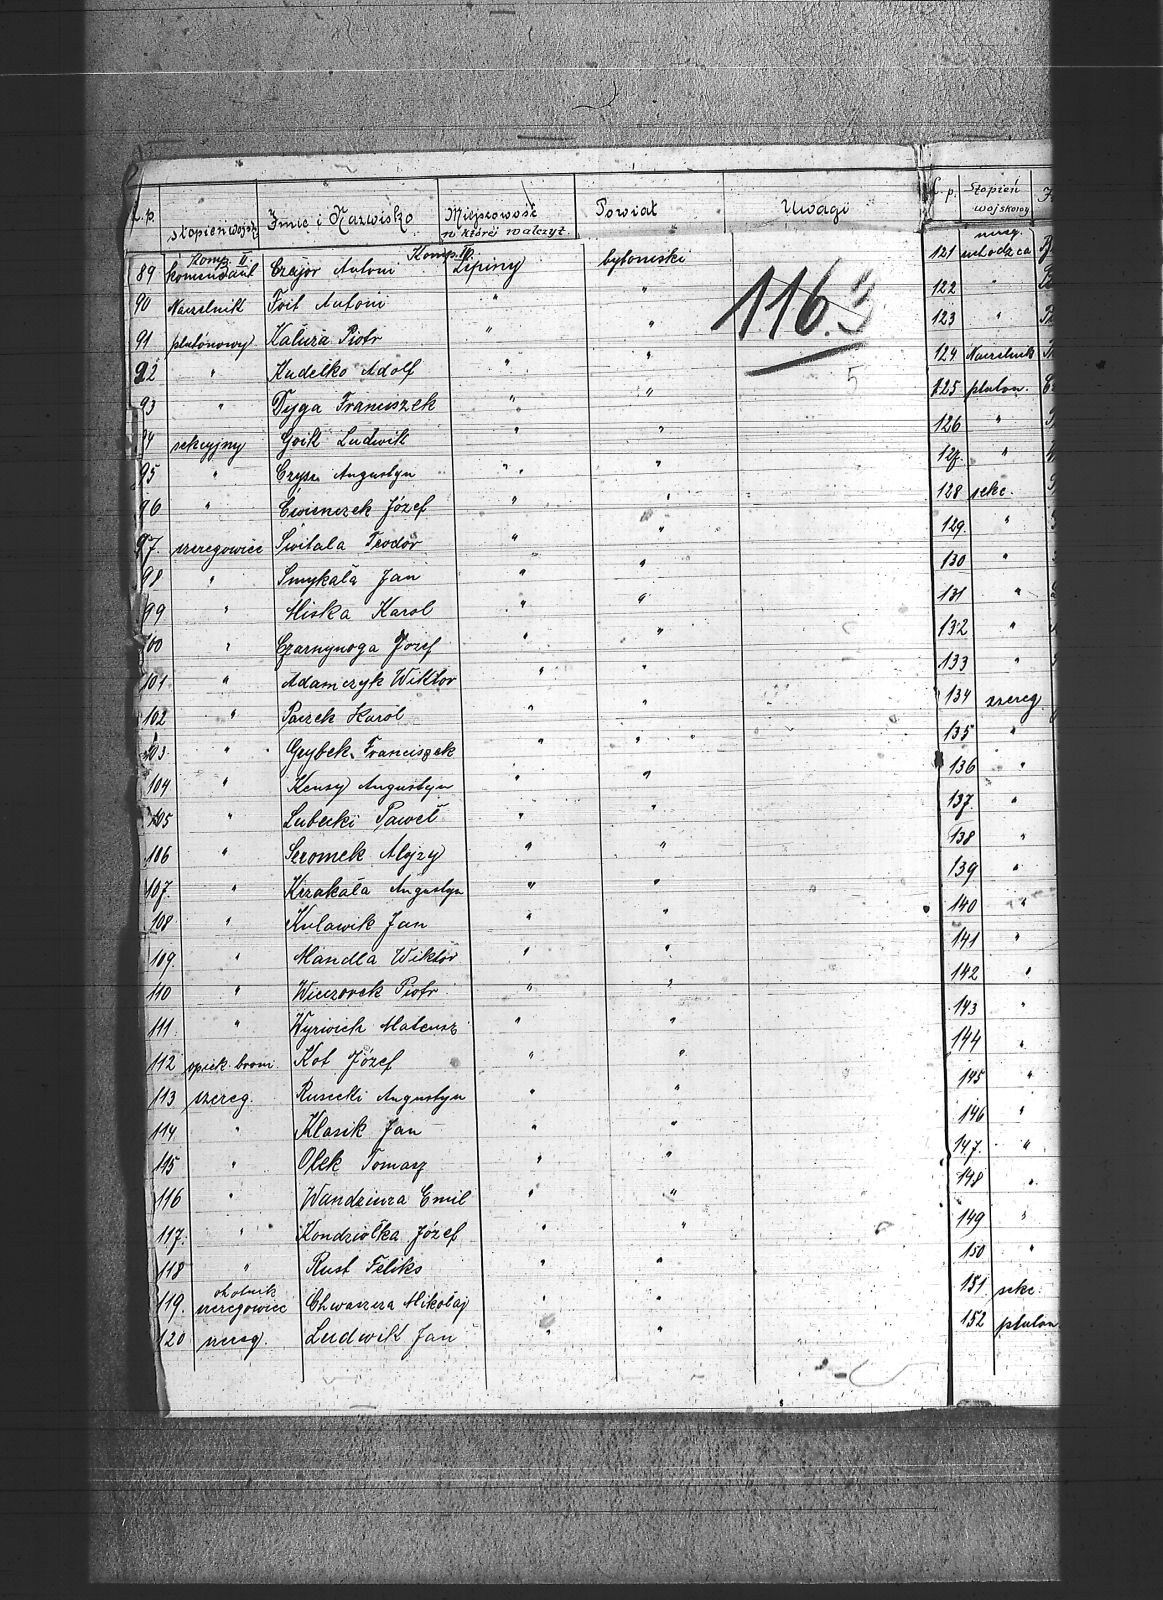 L.p. stopień wojsk. Imię i Nazwisko Miejscowość w której walczył Powiat Uwagi
Komp. II. Komp. II.
89 komendant Czajor Antoni Lipiny bytomski
90 Naczelnik Foit Antoni " "
116.3
91 plutonowy Kałuża Piotr " "
92 " Kudełko Adolf " "
5
93 " Dyga Franciszek " "
94 sekcyjny Goik Ludwik " "
95 " Czysz Augustyn " "
96 " Cwienczek Józef " "
97. szeregowiec Świtala Teodor " "
98 " Smykała Jan " "
99 " Miska Karol " "
100 " Czarnynoga Józef " "
101 " Adamczyk Wiktor " "
102 " Paczek Karol " "
103. " Grybek Franciszek " "
104 " Kensy Augustyn " "
105 " Lubecki Paweł " "
106 " Seromek Alojzy " "
107. " Krzakała Augustyn " "
108 " Kulawik Jan " "
109. " Mandla Wiktor " "
110 " Wieczorek Piotr " "
111 " Wyrwich Mateusz " "
112 opiek. broni Kot Józef " "
113 szereg. Rusecki Augustyn " "
114 " Klasik Jan " "
115 " Olek Tomasz " "
116 " Wandziura Emil " "
117. " Kondziołka Józef " "
118 " Rust Feliks " "
119. szeregowiec Chwaszcza Mikołaj " "
120 szereg. Ludwik Jan " "
L.p. Stopień wojskowy
121 młodsza
122 "
123 "
124 Naczelnik
125 pluton.
126 "
127. "
128 sekc.
129 "
130 "
131 "
132 "
133 "
134 szereg
135 "
136 "
137. "
138 "
139 "
140 "
141 "
142 "
143 "
144 "
145 "
146 "
147. "
148 "
149 "
150 "
151 sekc.
152 pluton.